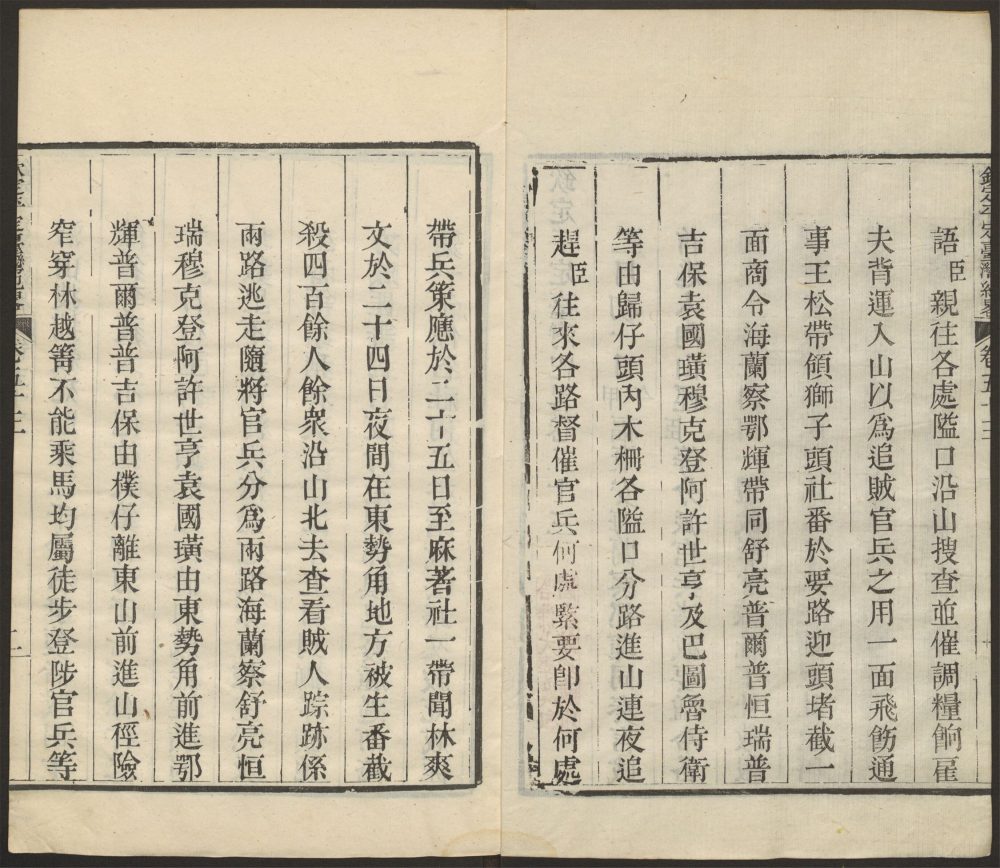 欽定平定臺灣紀畧 卷五十三
語臣親往各處隘口沿山搜查並催調糧餉雇
夫背運入山以為追賊官兵之用一面飛飭通
事王松帶領獅子頭社番於要路迎頭堵截一
面商令海蘭察鄂輝帶同舒亮普爾普恒瑞普
吉保袁國璜穆克登阿許世亨及巴圖魯侍衛
等由歸仔頭內木柵各隘口分路進山連夜追
趕臣往來各路督催官兵何處緊要卽於何處
帶兵策應於二十五日至麻著社一帶聞林爽
文於二十四日夜間在東勢角地方被生番截
殺四百餘人餘衆沿山北去查看賊人踪跡係
兩路逃走隨將官兵分爲兩路海蘭察舒亮恒
瑞穆克登阿許世亨袁國璜由東勢角前進鄂
輝普爾普普吉保由樸仔離東山前進山徑險
窄穿林越箐不能乘馬均屬徒步登陟官兵等